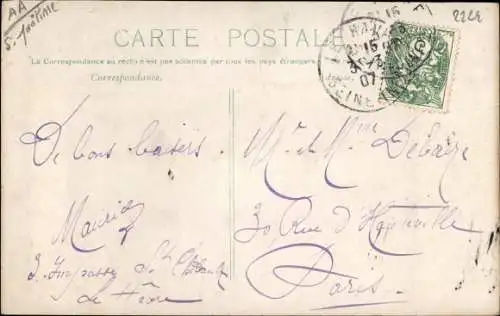 AA
S. Maritime
2224
CARTE POSTALE
La Correspondance au recto n'est pas acceptée par tous les pays étrangers
Correspondance.
07
SEINE
De bons baisers
Maurice
3 Impasse St Thibault
Le Hâvre
Mr et Mme Debaize
30 Rue d'Hauteville
Paris